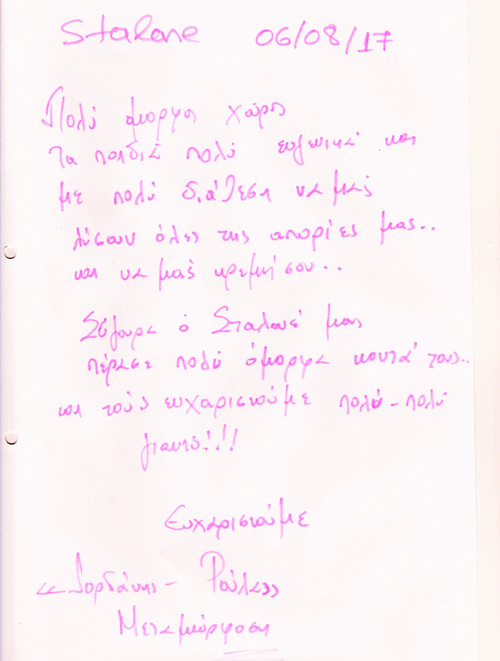 Stalone 06/08/17
Πολύ όμορφος χώρος
Τα παιδιά πολύ ευγενικά και
με πολύ διάθεση να μας
λύσουν όλες της απορίες μας..
και να μας ηρεμήσουν..
Σίγουρα ο Σταλονέ μας
πέρασε πολύ όμορφα κοντά τους..
και τους ευχαριστούμε πολύ-πολύ
γιαυτό!!!
Ευχαριστούμε
«Ιορδάνης - Ρούλα»
Μεταμόρφωση